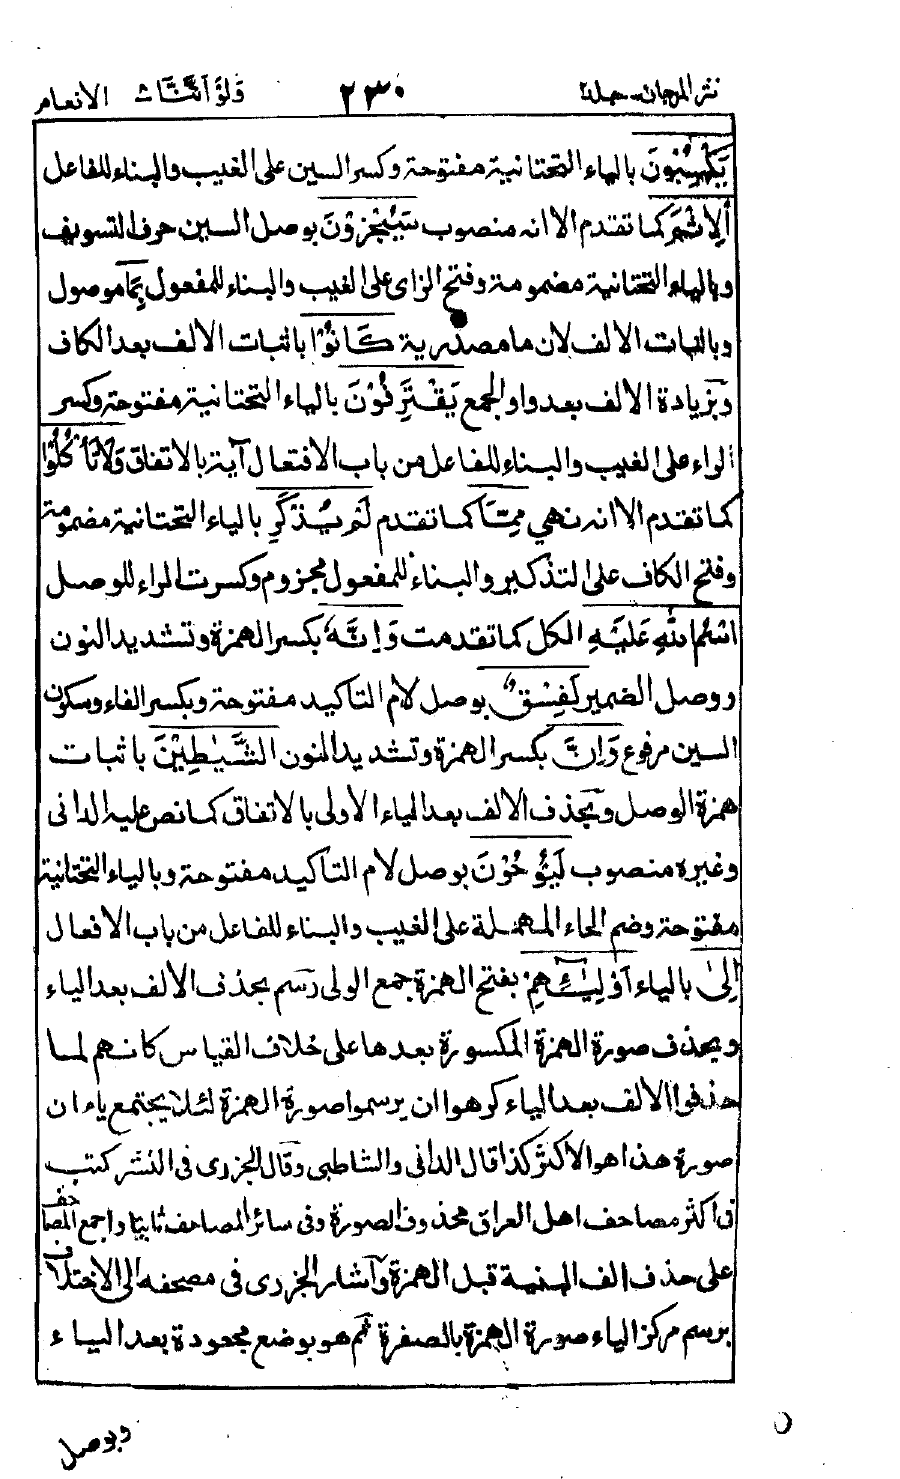 نثر المرجان - جلد٢ ٢٣٠ وَلَوْ أَنَّنَا ۸ الانعام
يَكْسِبُونَ بالياء التحتانية مفتوحة وكسر السين على الغيب والبناء للفاعل
اَلْاِثْمَ كما تقدم الا انه منصوب سَيُجْزَوْنَ بوصل السين حرف التسويف
وبالياء التحتانية مضمومة وفتح الزاى على الغيب والبناء للمفعول بِمَا موصول
وباثبات الالف لان ما مصدرية كَانُوْا باثبات الالف بعد الكاف
وبزيادة الالف بعد واو الجمع يَقْتَرِفُوْنَ بالياء التحتانية مفتوحة وكسر
الراء على الغيب والبناء للفاعل من باب الافتعال آية بالاتفاق وَلَا تَأْكُلُوْا
كما تقدم الا انه نهي مِمَّا كما تقدم لَمْ يُذْكَرِ بالياء التحتانية مضمومة
وفتح الكاف على التذكير والبناء للمفعول مجزوم وكسرت الراء للوصل
اسْمُ اللّٰهِ عَلَيْهِ الكل كما تقدمت وَاِنَّهُ بكسر الهمزة وتشديد النون
ووصل الضمير لَفِسْقٌ بوصل لام التاكيد مفتوحة وبكسر الفاء وسكون
السين مرفوع وَاِنَّ بكسر الهمزة وتشديد النون الشَّيٰطِيْنَ باثبات
همزة الوصل وبحذف الالف بعد الياء الاولى بالاتفاق كما نص عليه الدانى
وغيره منصوب لَيُوْحُوْنَ بوصل لام التاكيد مفتوحة وبالياء التحتانية
مفتوحة وضم الحاء المهملة على الغيب والبناء للفاعل من باب الافعال
اِلٰى بالياء اَوْلِيٰٓئِهِمْ بفتح الهمزة جمع الولى رسم بحذف الالف بعد الياء
وبحذف صورة الهمزة المكسورة بعدها على خلاف القياس كانهم لما
حذفوا الالف بعد الياء كرهوا ان يرسموا صورة الهمزة لئلا يجتمع ياءان
صورة هذا هو الاكثر كذا قال الدانى والشاطبى وقال الجزرى فى النشر كتب
فى اكثر مصاحف اهل العراق محذوف الصورة وفى سائر المصاحف ثابتا واجمع المصاحف
على حذف الف البنية قبل الهمزة وآشار الجزرى فى مصحفه الى الاختلاف
برسم مركز الياء صورة الهمزة بالصفرة ثم هو بوضع مجعودة بعد الياء
وبوصل